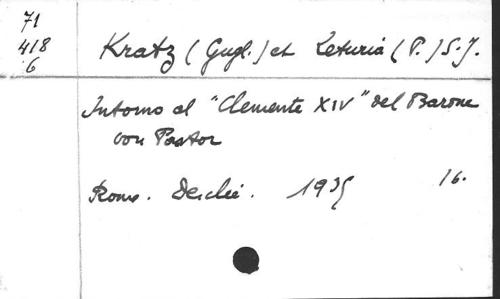 71
418
6
Kratz (Gugl.) et Leturia (P.) S.J.
Intorno al "Clemente XIV" del Barone
von Pastor
Roma. Desclée. 1935 16.